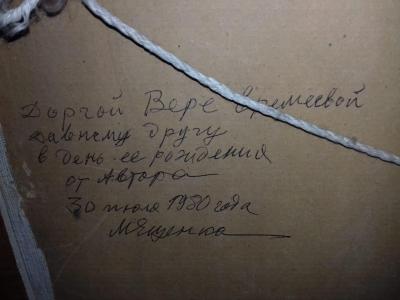 Доргой Вере Еремеевой
давнему другу
в день ее рождения
от Автора
30 июля 1980 года
МЯщенко